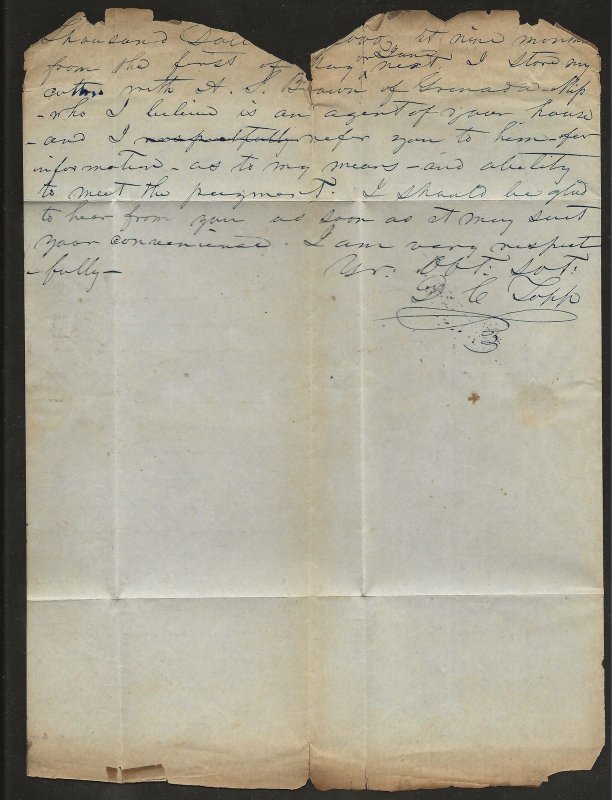 Thousand at nine months
from the first of May or June next I Store my
cotton with A. S. Brown of Grenada Mip
- who I believe is an agent of your house
- and I respectfully refer you to him - for
information - as to my means - and ability
to meet the payment. I should be glad
to hear from you as soon as it may suit
your convenience. I am very respect
- fully - Yr. Obt. Svt.
D. C. Topp